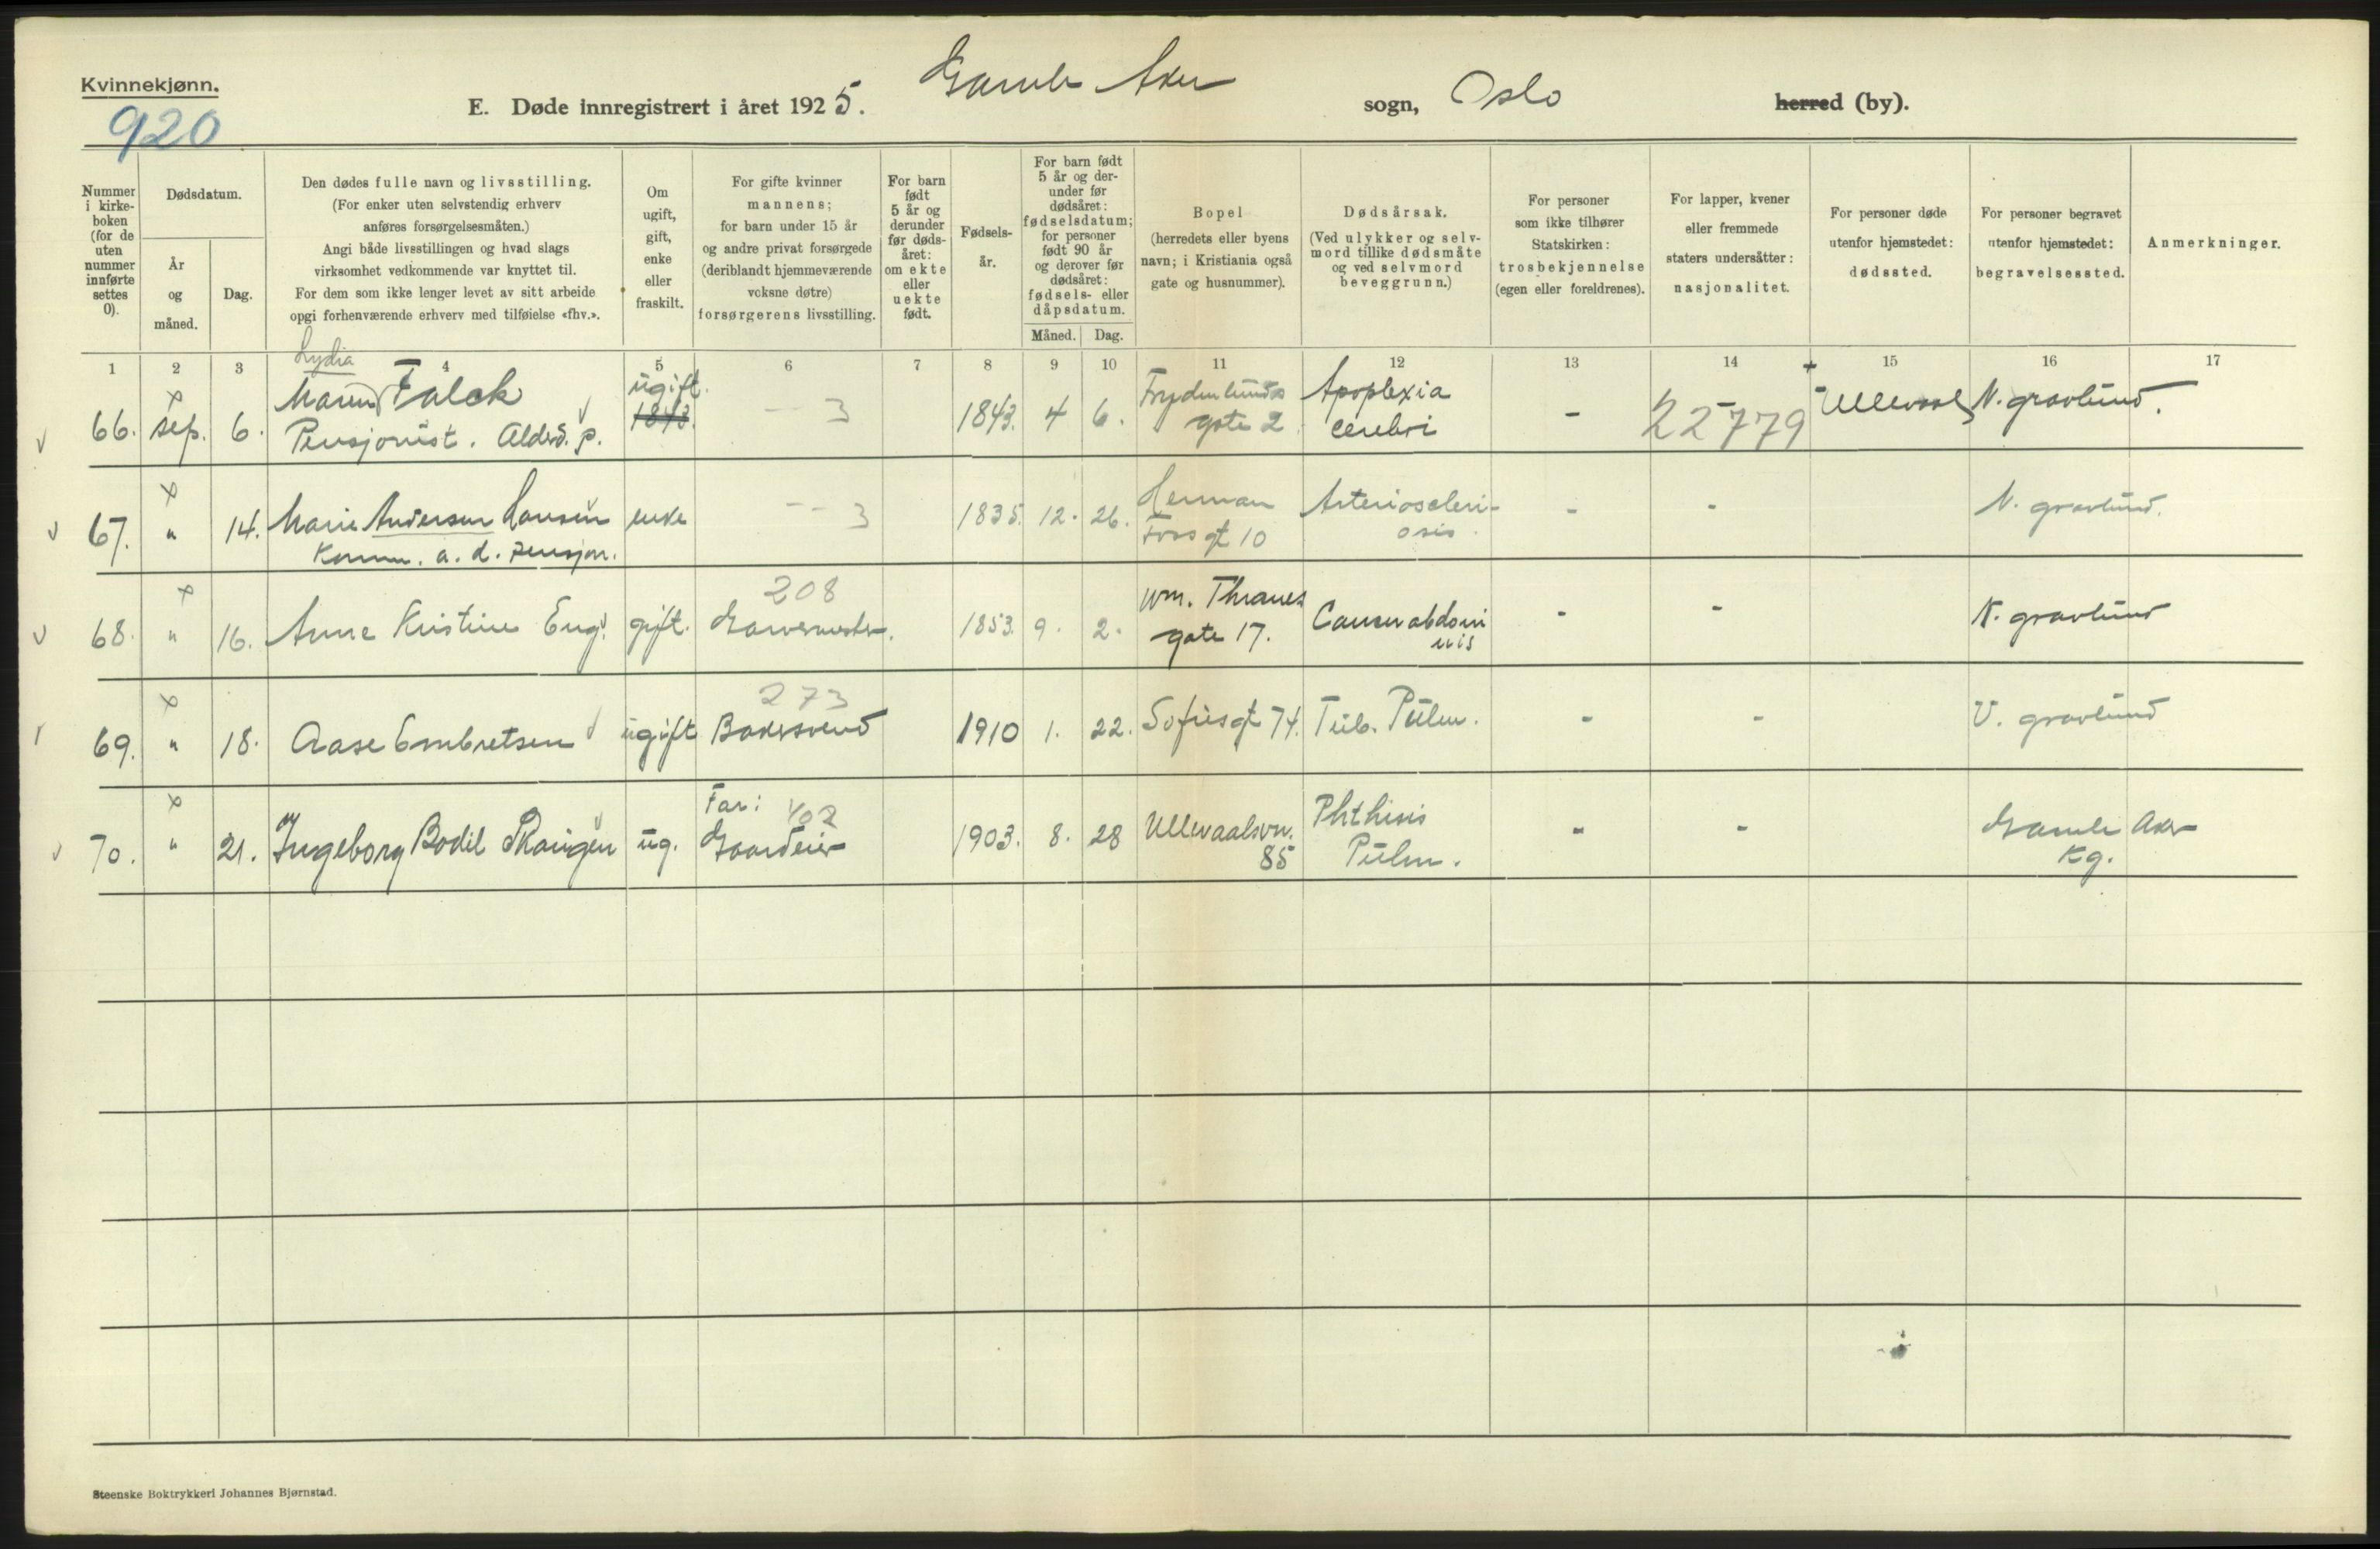 Kvinnekjønn.
920
E. Døde innregistrert i året 1925. Gamle Aker sogn, Oslo herred (by).
Nummer i kirke-boken (for de uten nummer innførte settes 0).
Dødsdatum.
År og måned.
Dag.
Den dødes fulle navn og livsstilling.
(For enker uten selvstendig erhverv
anføres forsørgelsesmåten.)
Angi både livsstillingen og hvad slags
virksomhet vedkommende var knyttet til.
For dem som ikke lenger levet av sitt arbeide
opgi forhenværende erhverv med tilføielse «fhv.».
Om ugift, gift, enke eller fraskilt.
For gifte kvinner
mannens;
for barn under 15 år
og andre privat forsørgede
(deriblandt hjemmeværende
voksne døtre)
forsørgerens livsstilling.
For barn født 5 år og derunder før døds-året: om ekte eller uekte født.
Fødsels-år.
For barn født 5 år og der-under før dødsåret: fødselsdatum; for personer født 90 år og derover før dødsåret: fødsels- eller dåpsdatum.
Måned. Dag.
Bopel
(herredets eller byens
navn; i Kristiania også
gate og husnummer).
Dødsårsak.
(Ved ulykker og selv-
mord tillike dødsmåte
og ved selvmord
beveggrunn.)
For personer
som ikke tilhører
Statskirken:
trosbekjennelse
(egen eller foreldrenes).
For lapper, kvener
eller fremmede
staters undersåtter:
nasjonalitet.
For personer døde
utenfor hjemstedet:
dødssted.
For personer begravet
utenfor hjemstedet:
begravelsessted.
Anmerkninger.
1 2 3 4 5 6 7 8 9 10 11 12 13 14 15 16 17
Lydia
66. sep. 6. Maren Falck ugift. 1843. - 3 1843. 4 6. Frydenlunds Apoplexia - 22779 Ullevaal N. gravlund.
Pensjonist. Alderd. p. gate 2 cerebri
67. " 14. Marie Andersen Hansen enke - - 3 1835. 12. 26. Herman Arterioscleri- - - N. gravlund.
Komm. a. d. pensjon. Foss gt 10 osis.
208
68. " 16. Anne Kristine Eng. gift. Garvermester. 1853. 9. 2. Wm. Thranes Cancer abdomi - - N. gravlund
gate 17. nis
273
69. " 18. Aase Embretsen ugift Bakersvend 1910 1. 22. Sofiesgt 74. Tub. Pulm. - - V. gravlund
Far: 402
70. " 21. Ingeborg Bodil Skaugen ug. Gaardeier 1903. 8. 28 Ullevaalsvn. Phthisis - - Gamle Aker
85 Pulm. Kg.
Steenske Boktrykkeri Johannes Bjørnstad.